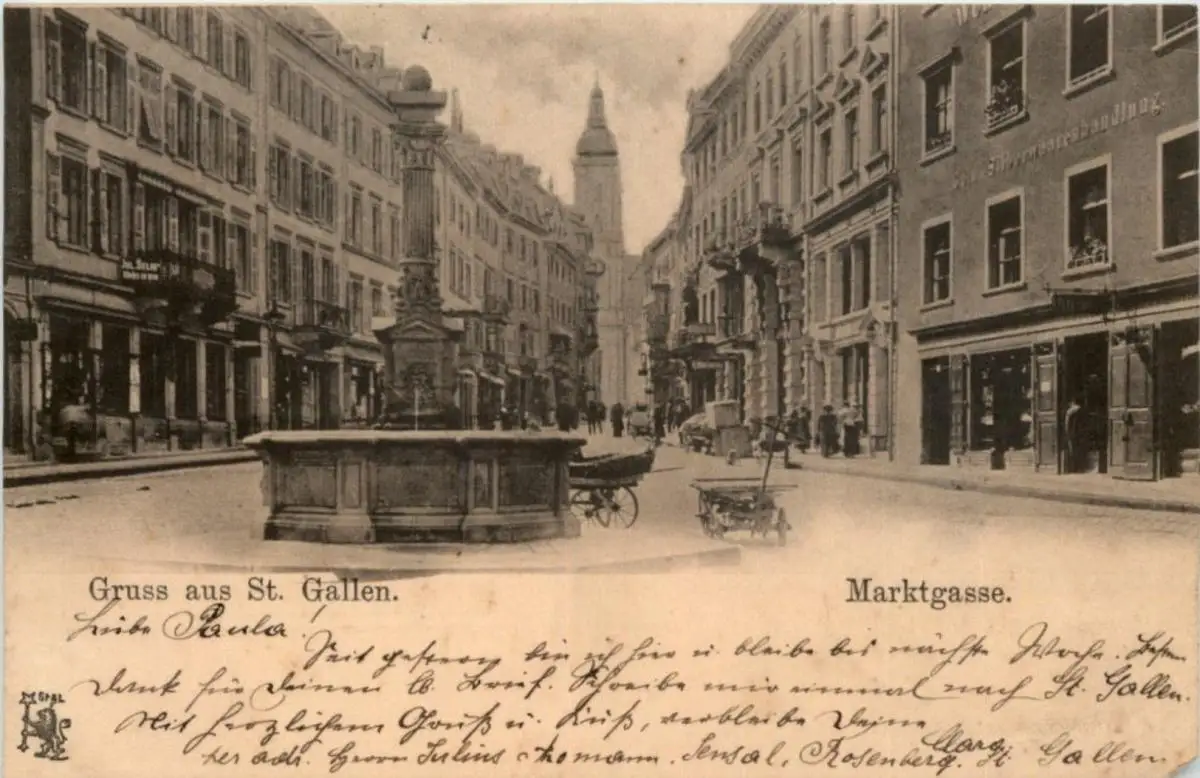 Silberwarenhandlung.
Gruss aus St. Gallen.
Marktgasse.
Liebe Paula!
Seit gestern bin ich hier u. bleibe bis nächste Woche. Besten
Dank für Deinen lb. Brief. Schreibe mir einmal nach St. Gallen.
Mit herzlichem Gruß u. Kuß, verbleibe Deine
adr. Herrn Julius Sensal, Rosenberg, St. Gallen